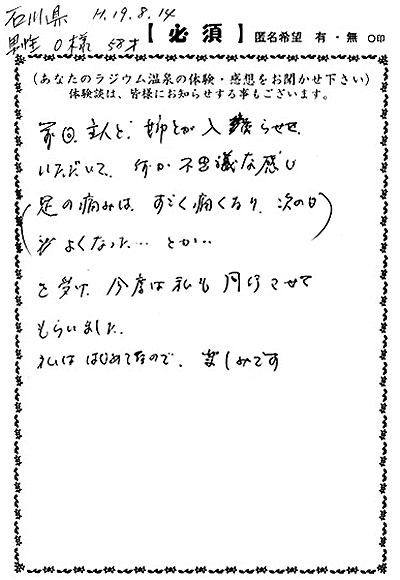 石川県 H.19.8.14
男性 O様 58才 【必須】 匿名希望 有・無 ○印
(あなたのラジウム温泉の体験・感想をお聞かせ下さい)
体験談は、皆様にお知らせする事もございます。
前回、主人と、姉とが入らせて
いただいて、何か不思議な感じ
(足の痛みは、すごく痛くなり、次の日
よくなった… とか…)
を受け、今度は私も同行させて
もらいました。
私ははじめてなので、楽しみです